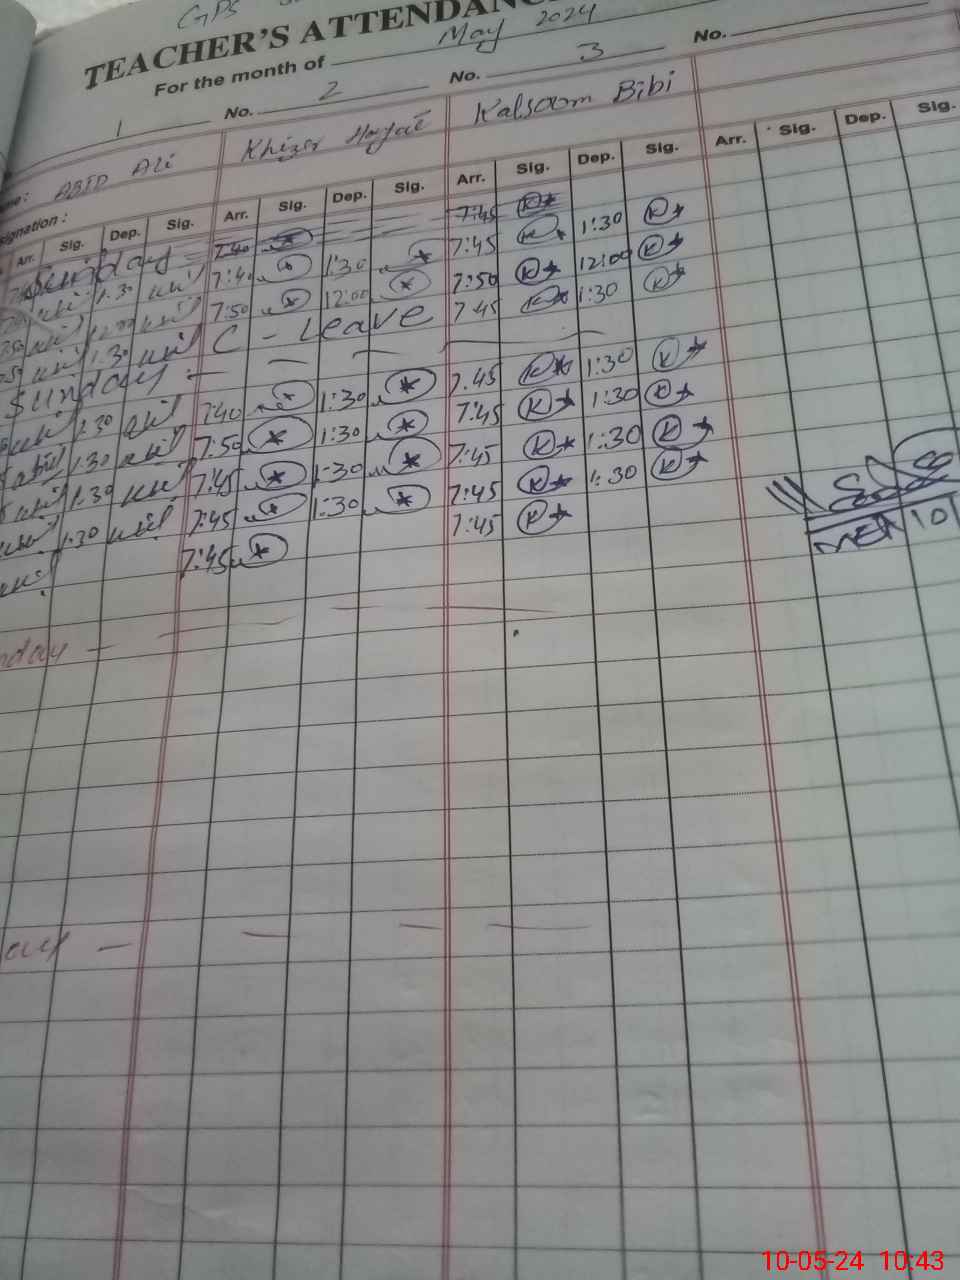 GPS
TEACHER'S ATTENDANC
For the month of May 2024
1 No. 2 No. 3 No.
me: ABID Ali Khizer Hayat Kalsoom Bibi
signation :
Arr. Sig. Dep. Sig. Arr. Sig. Dep. Sig. Arr. Sig. Dep. Sig. Arr. Sig. Dep. Sig.
Sunday 7:40 7:45
1:30 7:40 1:30 7:45 K 1:30 K
12:00 7:50 12:00 7:50 K 12:00 K
1:30 C - Leave 7:45 K 1:30 K
Sunday - — — — —
1:30 7:40 1:30 7:45 K 1:30 K
1:30 7:50 1:30 7:45 K 1:30 K
1:30 7:45 1:30 7:45 K 1:30 K
1:30 7:45 1:30 7:45 K 1:30 K
7:45 7:45 K
MEA 10
nday —
ay —
10-05-24 10:43